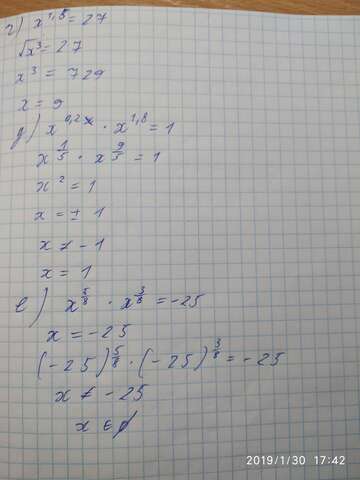 г) x^1,5 = 27
√x^3 = 27
x^3 = 729
x = 9
д) x^0,2 · x^1,8 = 1
x^1/5 · x^9/5 = 1
x^2 = 1
x = ± 1
x ≠ -1
x = 1
е) x^5/8 · x^3/8 = -25
x = -25
(-25)^5/8 · (-25)^3/8 = -25
x ≠ -25
x ∈ ∅
2019/1/30 17:42